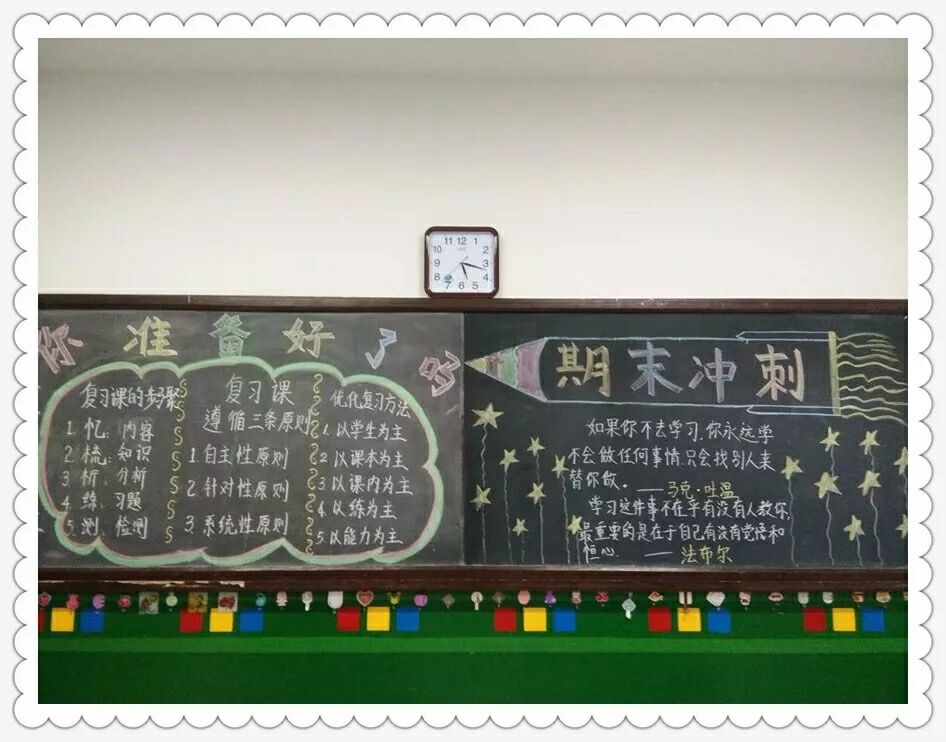 11 12 1
10 2
9 3
8 4
7 6 5
你准备好了吗
复习课的步骤
1. 忆：内容
2. 梳：知识
3. 析：分析
4. 练：习题
5. 测：检测
复习课
遵循三条原则
1. 自主性原则
2. 针对性原则
3. 系统性原则
优化复习方法
1. 以学生为主
2 以课本为主
3 以课内为主
4. 以练为主
5. 以能力为主
期末冲刺
如果你不去学习,你永远学
不会做任何事情.只会找别人来
替你做。——马克·吐温
学习这件事不在乎有没有人教你,
最重要的是在于自己有没有觉悟和
恒心. —— 法布尔